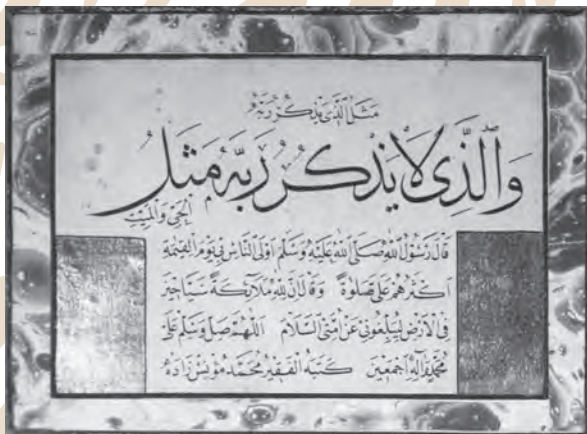 مَثَلُ الَّذِي يَذْكُرُ رَبَّهُ
وَالَّذِي لَا يَذْكُرُ رَبَّهُ مَثَلُ
الْحَيِّ وَالْمَيِّتِ
قَالَ رَسُولُ اللهِ صَلَّى اللهُ عَلَيْهِ وَسَلَّمَ اَوْلَى النَّاسِ بِي يَوْمَ الْقِيٰمَةِ
اَكْثَرُهُمْ عَلَيَّ صَلٰوةً وَقَالَ اِنَّ لِلّٰهِ مَلَائِكَةً سَيَّاحِينَ
فِي الْاَرْضِ لِيُبَلِّغُونِي عَنْ اُمَّتِي السَّلَامَ اَللّٰهُمَّ صَلِّ وَسَلِّمْ عَلَى
مُحَمَّدٍ وَآلِهِ اَجْمَعِينَ كَتَبَهُ الْفَقِيرُ مُحَمَّد مُؤْنِسْ زَادَهْ